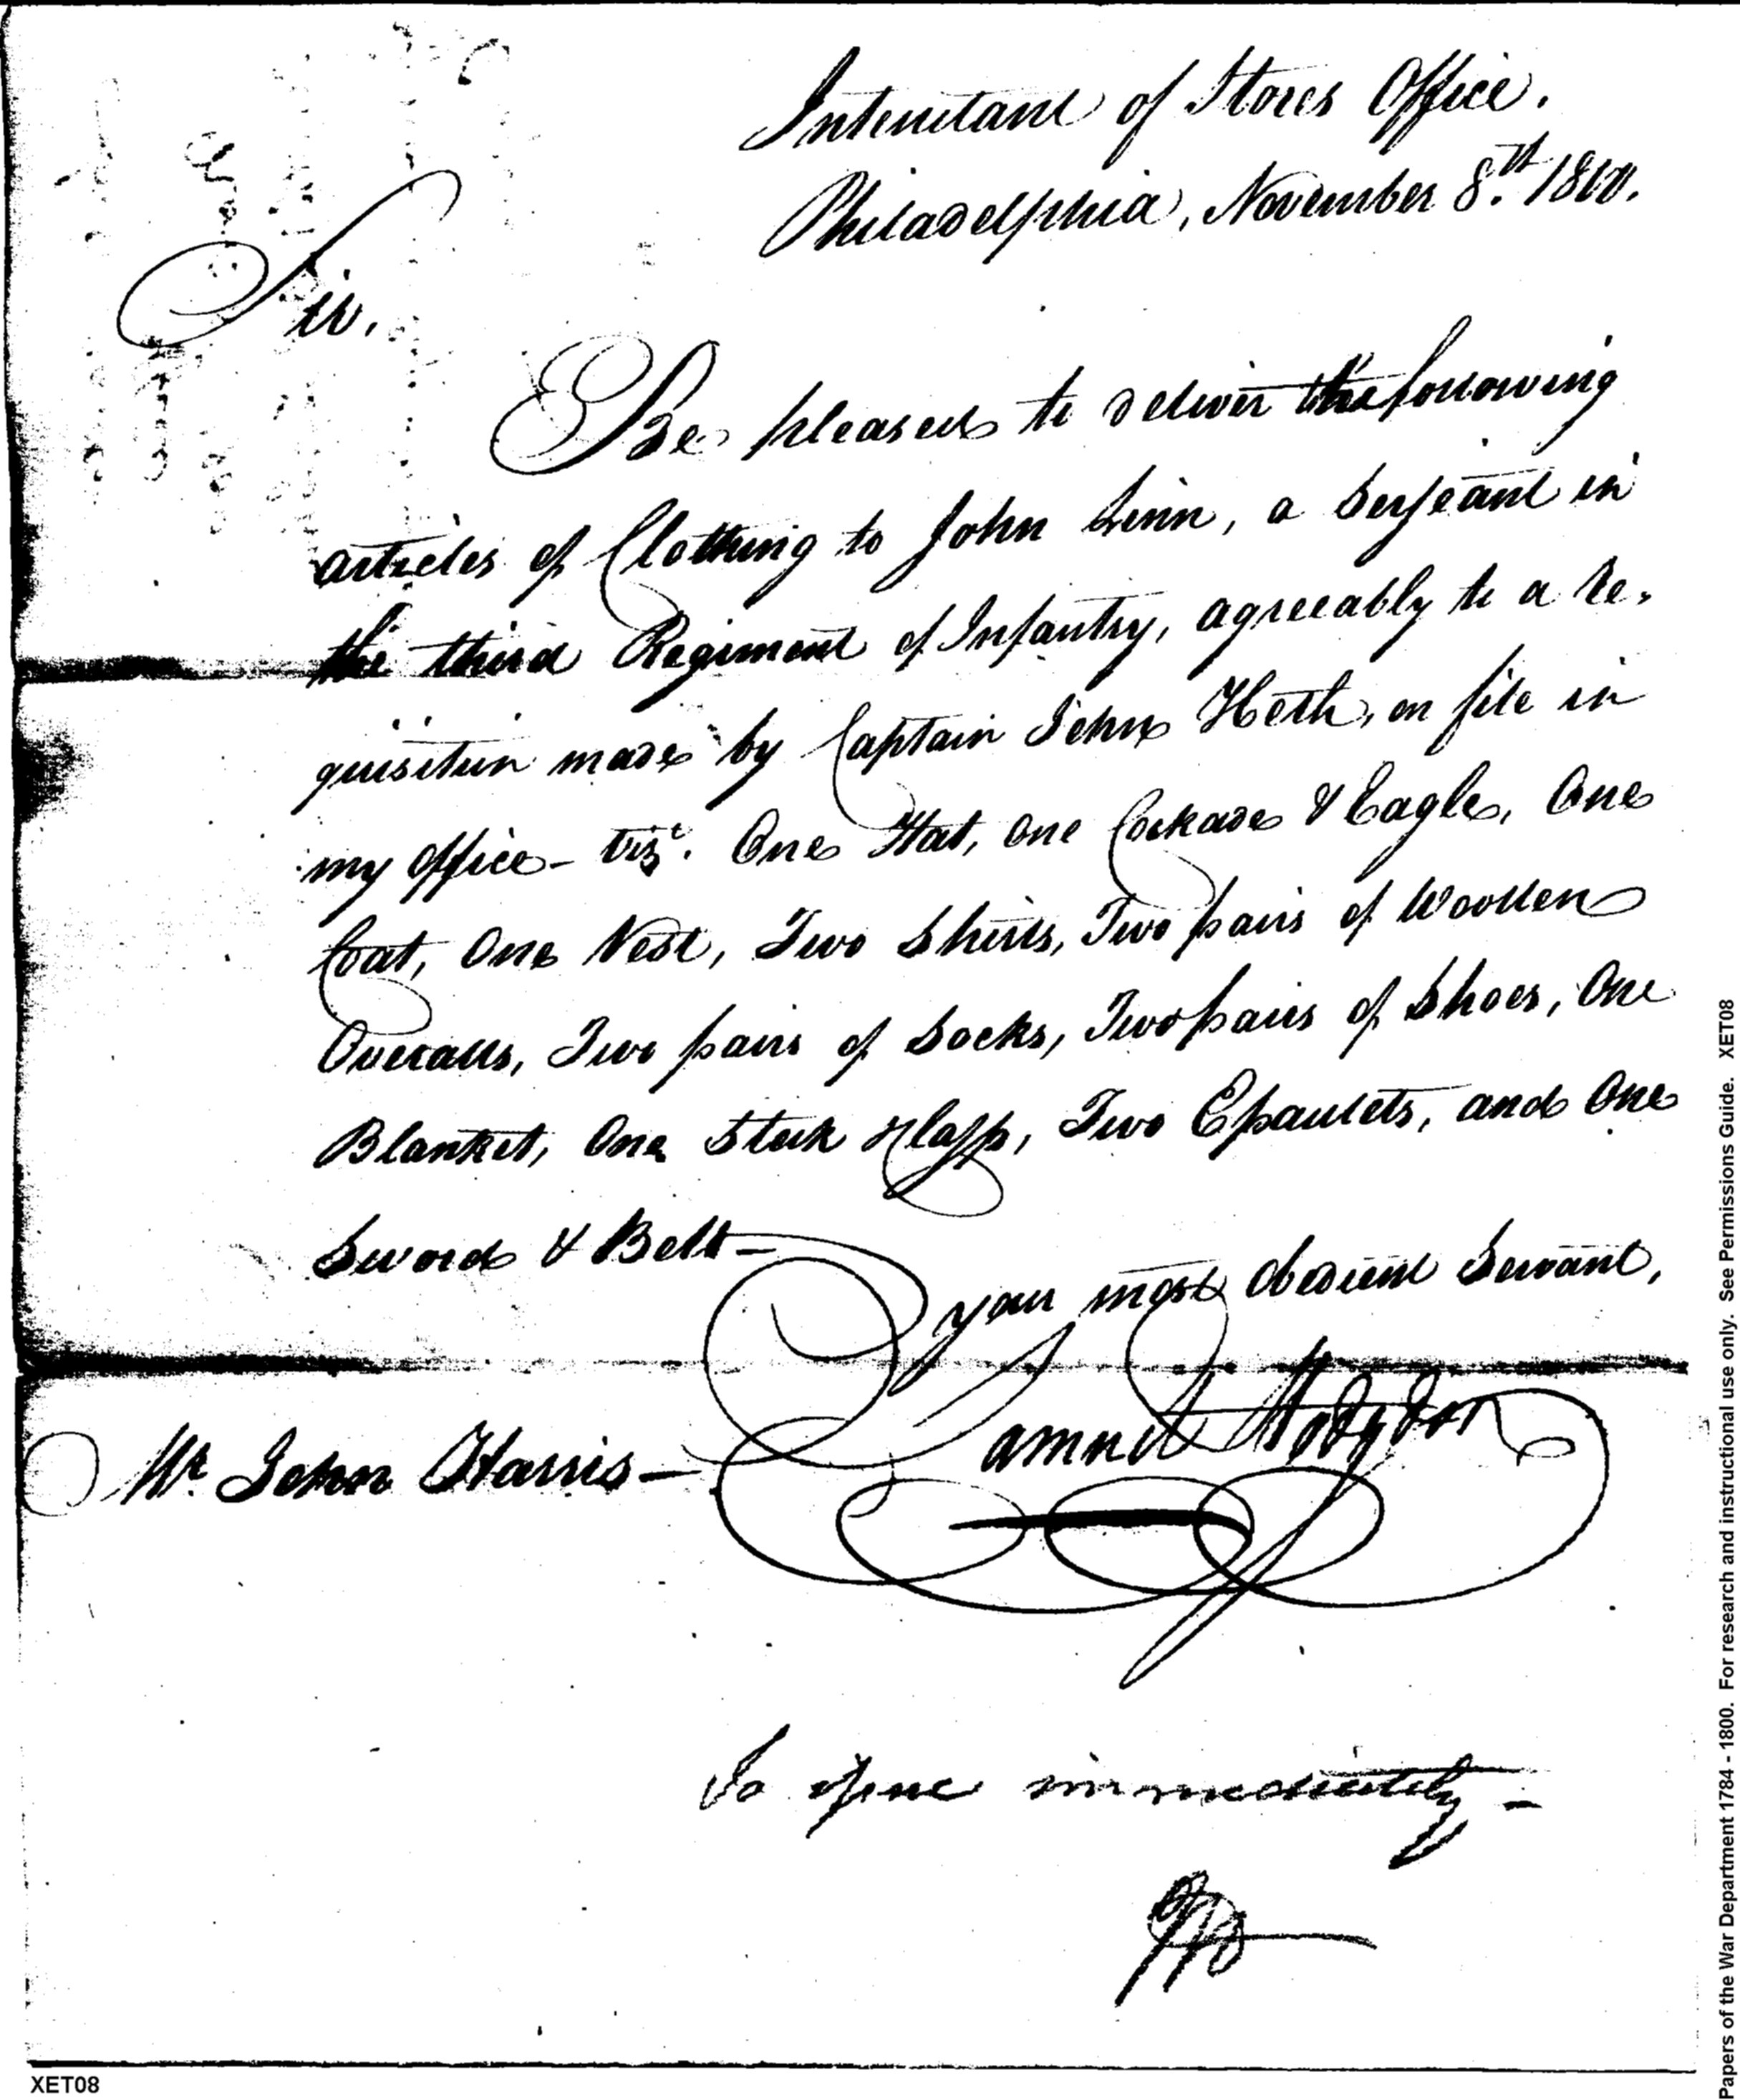 Intendant of Stores Office.
Philadelphia, November 8th. 1800.
Sir,
Be pleased to deliver the following
articles of Clothing to John Linn, a Serjeant in
the third Regiment of Infantry, agreeably to a re-
quisition made by Captain John Heth, on file in
my office - vizt. One Hat, one Cockade & Eagle, One
Coat, One Vest, Two Shirts, Two pairs of Woollen
Overalls, Two pairs of Socks, Two pairs of Shoes, One
Blanket, One Stock & Clasp, Two Epaulets, and One
Sword & Belt -
your most obedient Servant,
Samuel Hodgdon
Mr. John Harris -
To issue immediately -
XET08
Papers of the War Department 1784 - 1800. For research and instructional use only. See Permissions Guide. XET08